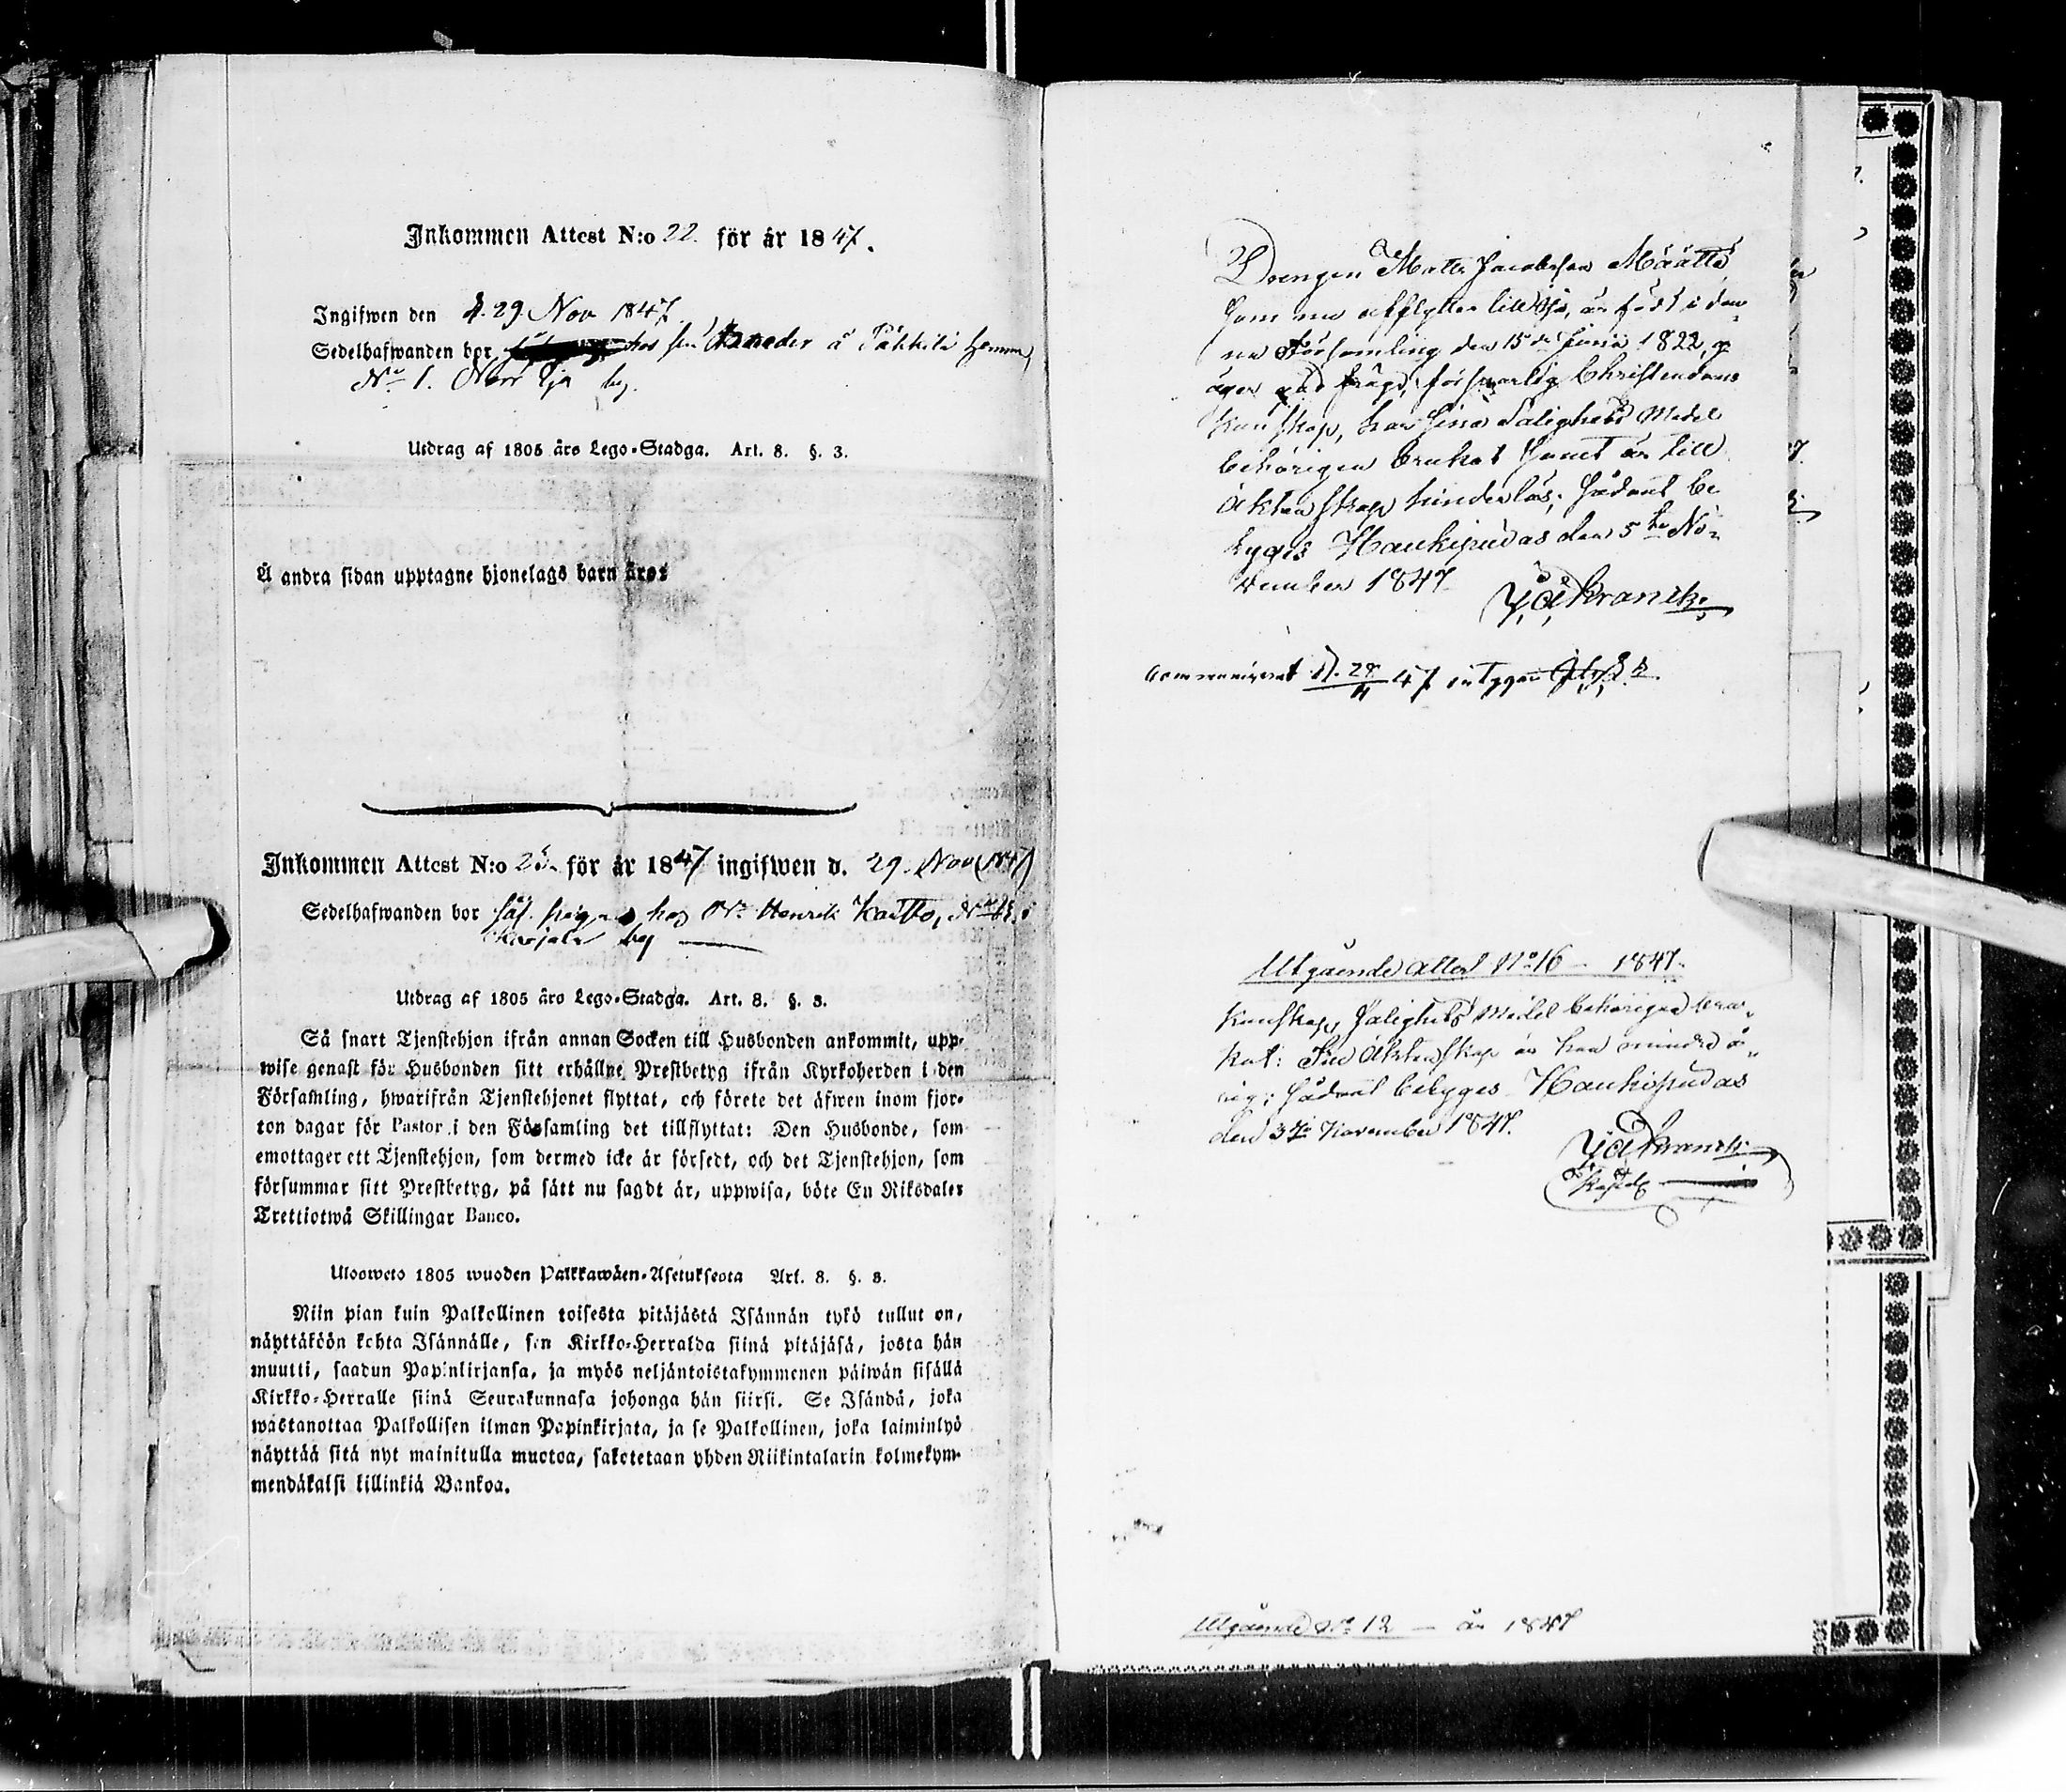 Inkommen Attest N:o 22. för år 1847.
Ingifwen den d. 29. Nov 1847.
Sedelhafwanden bor hos sin å Päkkilä hemman
No 1. Norr Ijo by.
Utdrag af 1805 års Lego-Stadga. Art. 8. §. 3.
Å andra sidan upptagne hjonelags barn äro:
Inkommen Attest N:o för år 1847 ingifwen d. 29. Nov (1847)
Sedelhafwanden bor hos Henrik Kaitto,
Karjala by
Utdrag af 1805 års Lego-Stadga. Art. 8. §. 3.
Så snart Tjenstehjon ifrån annan Socken till Husbonden ankommit, upp-
wise genast för Husbonden sitt erhållne Prestbetyg ifrån Kyrkoherden i den
Församling, hwarifrån Tjenstehjonet flyttat, och förete det äfwen inom fjor-
ton dagar för Pastor i den Församling det tillflyttat: Den Husbonde, som
emottager ett Tjenstehjon, som dermed icke är försedt, och det Tjenstehjon, som
försummar sitt Prestbetyg, på sätt nu sagdt är, uppwisa, böte En Riksdaler
Trettiotwå Skillingar Banco.
Ulosweto 1805 wuoden Palkkawäen-Asetuksesta Art. 8. §. 3.
Niin pian kuin Palkollinen toisesta pitäjästä Isännän tykö tullut on,
näyttäköön kohta Isännälle, sen Kirkko-Herralda siinä pitäjäsä, josta hän
muutti, saadun Papinkirjansa, ja myös neljäntoistakymmenen päiwän sisällä
Kirkko-Herralle siinä Seurakunnasa johonga hän siirsi. Se Isändä, joka
wastanottaa Palkollisen ilman Papinkirjata, ja se Palkollinen, joka laiminlyö
näyttää sitä nyt mainitulla muotoa, sakotetaan yhden Riikintalarin kolmekym-
mendäkaksi killinkiä Bankoa.
Drengen Matts Jacobsson Määttä
som nu afflyttar till Ijo, är född i den-
na Församling den 15de Junii 1822,
äger god frägd, försvarlig Christendoms
kunskap, har sina Salighets Medel
behörigen brukat samt är till
Äktenskap hinderlös; sådant be
tygas Haukipudas den 5te No-
vember 1847.
Krank
Communicerat d. 28/11 47 intygar
Utgående attest No 16 1847.
Kunskap, Salighets Medel behörigen bru-
kat: Till Äktenskap är han mindre å-
rig; sådant betygas Haukipudas
den 3die November 1847.
Krank
Utgående No 12 — år 1847